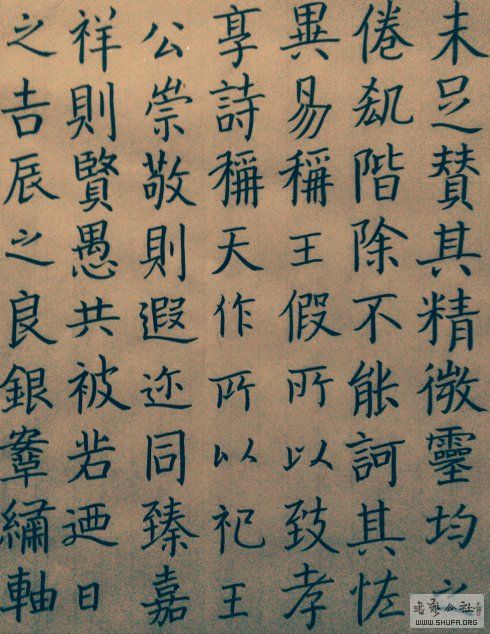 未足賛其精微靈均之
倦階除不能訶其恠
異易稱王假所以致孝
享詩稱天作所以祀王
公崇敬則遐迩同臻嘉
祥則賢愚共被若迺日
之吉辰之良銀繡軸
书艺公社
WWW.SHUFA.ORG